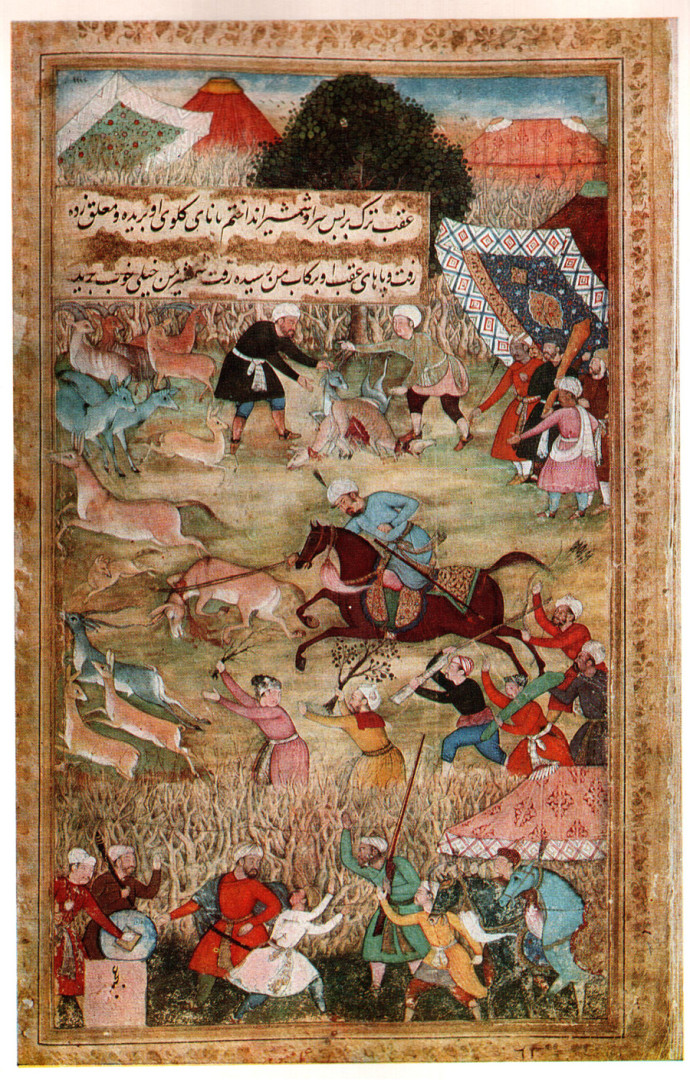 عقب ترک بر پس سر او شمشیر انداختم تا نای کلوی او بریده و معلق زده
رفت و پاهای عقب او برکاب من رسیده رفت شمشیر من خیلی خوب برید